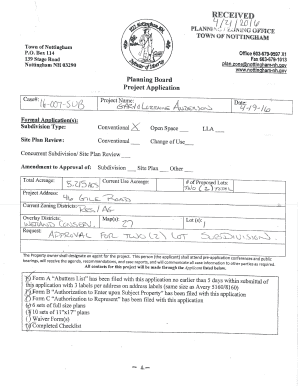 RECEIVED
4/21/2016
PLANNING ZONING OFFICE
TOWN OF NOTTINGHAM
Town of Nottingham
P.O. Box 114
139 Stage Road
Nottingham NH 03290
Office 603-679-9597 X1
Fax 603-679-1013
plan.zone@nottingham-nh.gov
www.nottingham-nh.gov
Planning Board
Project Application
Case#: 16-007-SUB
Project Name: GARY & LORRAINE ANDERSON
Date: 4-19-16
Formal Application(s):
Subdivision Type: Conventional X Open Space LLA
Site Plan Review: Conventional Change of Use
Concurrent Subdivision/ Site Plan Review
Amendment to Approval of: Subdivision Site Plan Other
Total Acreage: Current Use Acreage: # of Proposed Lots: TWO (2)
Project Address: GILE ROAD
Current Zoning District: RES/AG
Overlay District: Map(s): 27 Lot (s):
Request: APPROVAL FOR TWO (2) LOT SUBDIVISION
The Property owner shall designate an agent for the project. This person (the applicant) shall attend pre-application conferences and public
hearings, will receive the agenda, recommendations, and case reports, and will communicate all case information to other parties as required.
All contacts for this project will be made through the Applicant listed below.
Form A "Abutters List" has been filed with this application no earlier than 5 days within submittal of
this application with 3 labels per address on address labels (same size as Avery 5160/8160)
Form B "Authorization to Enter upon Subject Property" has been filed with this application
Form C "Authorization to Represent" has been filed with this application
6 sets of full size plans
10 sets of 11"x17" plans
Waiver Form(s)
Completed Checklist